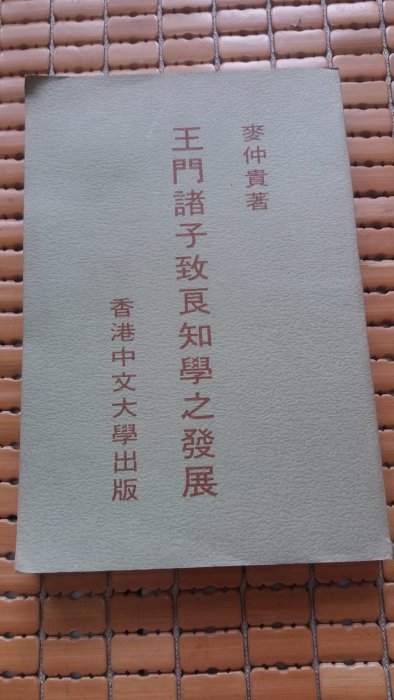 麥仲貴著
王門諸子致良知學之發展
香港中文大學出版